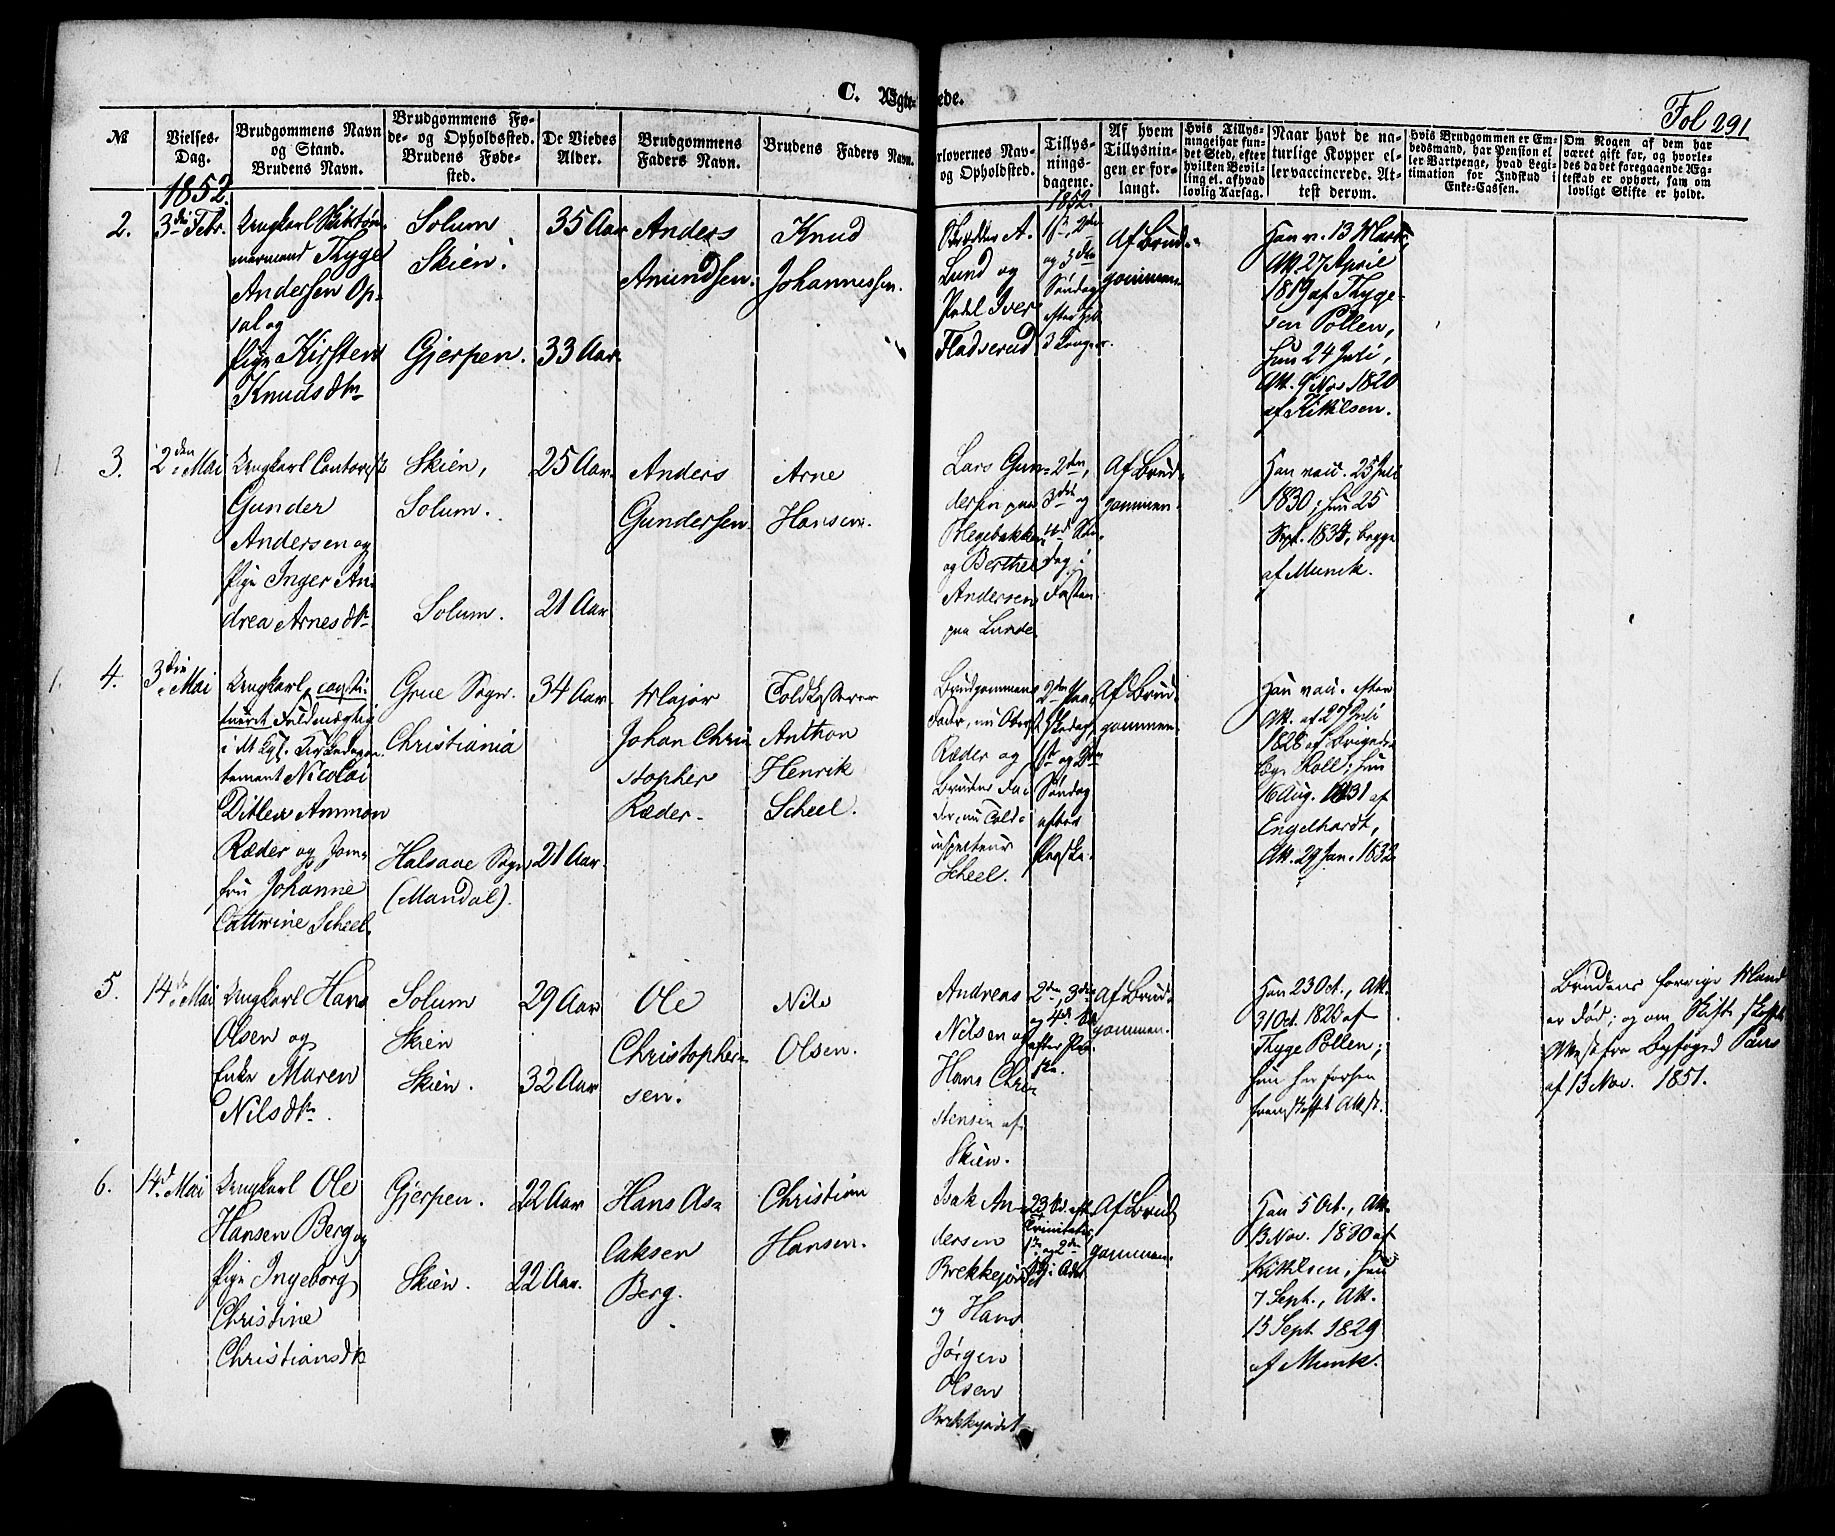 C. Ægte-
ede.
Fol 291
№
Vielses-
Dag.
Brudgommens Navn
og Stand.
Brudens Navn.
Brudgommens Fø-
de- og Opholdssted.
Brudens Føde-
sted.
De Viedes
Alder.
Brudgommens
Faders Navn.
Brudens Faders Navn.
rlovernes Nav-
og Opholdsted.
Tillys-
nings-
dagene.
Af hvem
Tillysnin-
gen er for-
langt.
Hvis Tillys-
ningel har fun-
det Sted, efter
hvilken Bevil-
ling el. afhvad
lovlig Aarsag.
Naar havt de na-
turlige Kopper el-
ler vaccinerede. At-
test derom.
Hvis Brudgommen er Em-
bedsmand, har Pension el-
ler Vartpenge, hvad Legi-
timation for Indskud i
Enke-Cassen.
Om Nogen af dem har
været gift før, og hvorle-
des da det foregaaende Æg-
teskab er ophørt, samt om
lovligt Skifte er holdt.
1852.
1852.
2.
3die Febr.
Ungkarl
Thyge
Andersen Op-
sal og
Pige Kirsten
Knudsdtr
Solum
Skien.
Gjerpen.
35 Aar
33 Aar.
Anders
Amundsen.
Knud
Johannessen.
A.
Lund og
Iver
Fladserud
1ste, 2den
og 3die
Søndag
efter Hel.
3 Konger.
Af Brud-
gommen
Han v. 13 Marts,
Att. 27 April
1819 af Thyge-
sen Pollen,
hun 24 Juli,
Att. 9 Nov 1820
af Kittilsen.
1.
3.
2den Mai
Ungkarl Contorist
Gunder
Andersen og
Pige Inger An-
drea Arnesdtr
Skien,
Solum.
Solum.
25 Aar.
21 Aar
Anders
Gundersen.
Arne
Hansen.
Lars Gun-
dersen paa
og Berthel
Andersen
paa Lunde
2den,
3die og
4de Søn-
dag i
Fasten
Af Brud-
gommen.
Han vacc. 25 Juli
1830; hun 25
Sept. 1834, begge
af Munck.
1.
4.
3die Mai
Ungkarl, consti-
tueret Fuldmægtig
i det Kgl.
tement Nicolai
Ditlev Ammon
Ræder og Jom-
fru Johanne
Cathrine Scheel.
Grue Sogn.
Christiania
Halsaae Sogn
(Mandal).
34 Aar
21 Aar.
Major
Johan Chri
stopher
Ræder.
Toldkasserer
Anthon
Henrik
Scheel.
Brudgommens
Fader, nu Oberst
Ræder og
Brudens Fa-
der, nu Told-
inspecteur
Scheel.
2den Paa-
skedag,
1ste og 2den
Søndag
efter
Paaske.
Af Brud-
gommen.
Han vacc. efter
Att. af 20 Juli
1828 af Brigade-
læge Roll; hun
16 Aug. 1831 af
Engelhardt,
Att. 29 Jan. 1832
5.
14de Mai
Ungkarl Hans
Olsen og
Enke Maren
Nilsdtr.
Solum
Skien
Skien.
29 Aar
32 Aar
Ole
Christopher-
sen.
Nils
Olsen.
Andreas
Nilsen og
Hans Chri-
stensen af
Skien.
2den, 3die
og 4de Sø.
efter Paa-
ske.
Af Brud-
gommen.
Han 23 Oct., Att.
31 Oct. 1823 af
Thyge Pollen;
hun har forhen
fremskaffet Attest.
Brudens forrige Mand
er død; og om Skifte skaffet
Attest fra Byfoged Paus
af 13 Nov. 1851.
6.
14d Mai
Ungkarl Ole
Hansen Berg og
Pige Ingeborg
Christine
Christiansdtr
Gjerpen.
Skien.
22 Aar
22 Aar.
Hans As-
laksen
Berg.
Christian
Hansen.
Isak An-
dersen
Brekkejor-
det
og Hans
Jørgen
Olsen
Brekkejordet
23 Sø. eft.
Trinitatis,
1ste og 2den
Sø. i Advt
Af Brud
gommen.
Han 5 Oct., Att.
13 Nov. 1830 af
Kittilsen, hun
7 Sept., Att.
15 Sept 1829
af Munk.